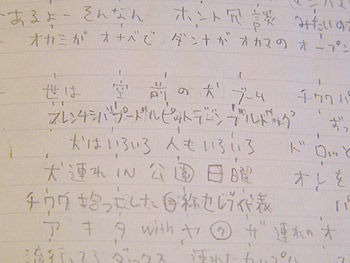 あるよー そんなん ホント冗談 みたいの
オカミがオナベで ダンナがオカマの オープン
世は 空前の犬ブーム チワワ
フレンチシバプードルピットデーンブルドッグ
犬はいろいろ 人もいろいろ ドロッ
犬連れIN公園日曜 オレを
チワワ抱っこした自称セレブ代表
アキタ with ヤ ザ 連れのオ
流行ってるダックス 連れたカップル